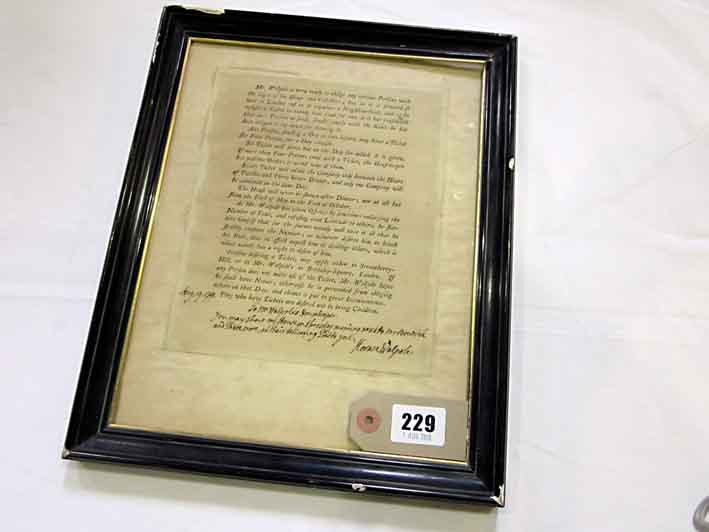 Mr. Walpole is very ready to oblige any curious Persons with
the Sight of his House and Collection; but as it is situated so
near to London and in so populous a Neighbourhood, and as he
refuses a Ticket to nobody that sends for one, it is but reasonable
that such Persons as send, should comply with the Rules he has
been obliged to lay down for shewing it.
Any Person, sending a Day or two before, may have a Ticket
for Four Persons for a Day certain.
No Ticket will serve but on the Day for which it is given.
If more than Four Persons come with a Ticket, the Housekeeper
has positive Orders to admit none of them.
Every Ticket will admit the Company only between the Hours
of Twelve and Three before Dinner, and only one Company will
be admitted on the same Day.
The House will never be shewn after Dinner; nor at all but
from the First of May to the First of October.
As Mr. Walpole has given Offence by sometimes enlarging the
Number of Four, and refusing that Latitude to others, he flat-
ters himself that for the future nobody will take it ill that he
strictly confines the Number; as whoever desires him to break
his Rule, does in effect expect him to disoblige others, which is
what nobody has a right to desire of him.
Persons desiring a Ticket, may apply either to Strawberry-
Hill, or to Mr. Walpole's in Berkeley-Square, London. If
any Person does not make use of the Ticket, Mr. Walpole hopes
he shall have Notice; otherwise he is prevented from obliging
others on that Day, and thence is put to great Inconvenience.
They who have Tickets are desired not to bring Children.
To Mr Walpole's Housekeeper.
You may shew my House on Thursday morning next to
and three more, on their delivering this to you.
Horace Walpole
229